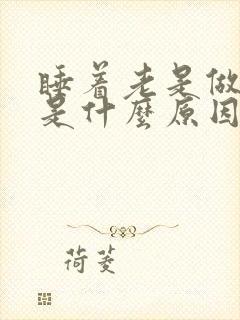 睡着老是做
是什麼原因
荷菱